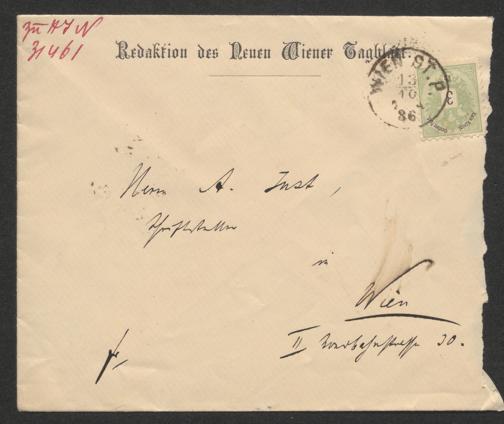 zu HIN
31461
Redaktion des Neuen Wiener Tagblatt.
WIEN ST. P.
13
10
86
3
Herrn A. Just,
Schriftsteller
in
Wien
II Nordbahnstrasse 30.
fr,